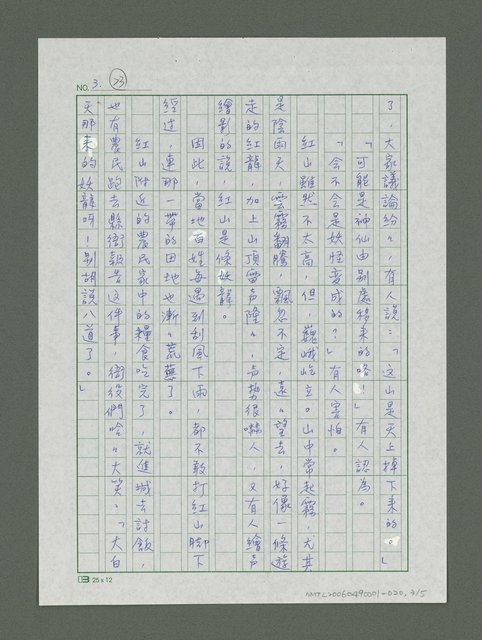 NO. 3. 23
了，大家議論紛々，有人說：「這山是天上掉下來的。」
「可能是神仙由別處移來的咯！」有人認為。
「會不會是妖怪変成的？」有人害怕。
紅山雖然不太高，但，巍峨屹立。山中常起霧，尤其
是陰雨天，雲霧翻騰，飄忽不定，遠々望去，好像一條遊
走的紅龍，加上山頂雷声隆々，声势很嚇人，又有人繪声
繪影的說，紅山是條妖龍。
因此，當地百姓每遇到刮風下雨，都不敢打紅山腳下
經过，連那一帶的田地也漸々荒蕪了。
紅山附近的農民家中的糧食吃完了，就進城去討飯，
也有農民跑去縣衙報告這件事，衙役們哈々大笑：「大白
天那來的妖龍呀！別胡說八道了。」
25 x 12
NMTL20060490001-020, 3/5